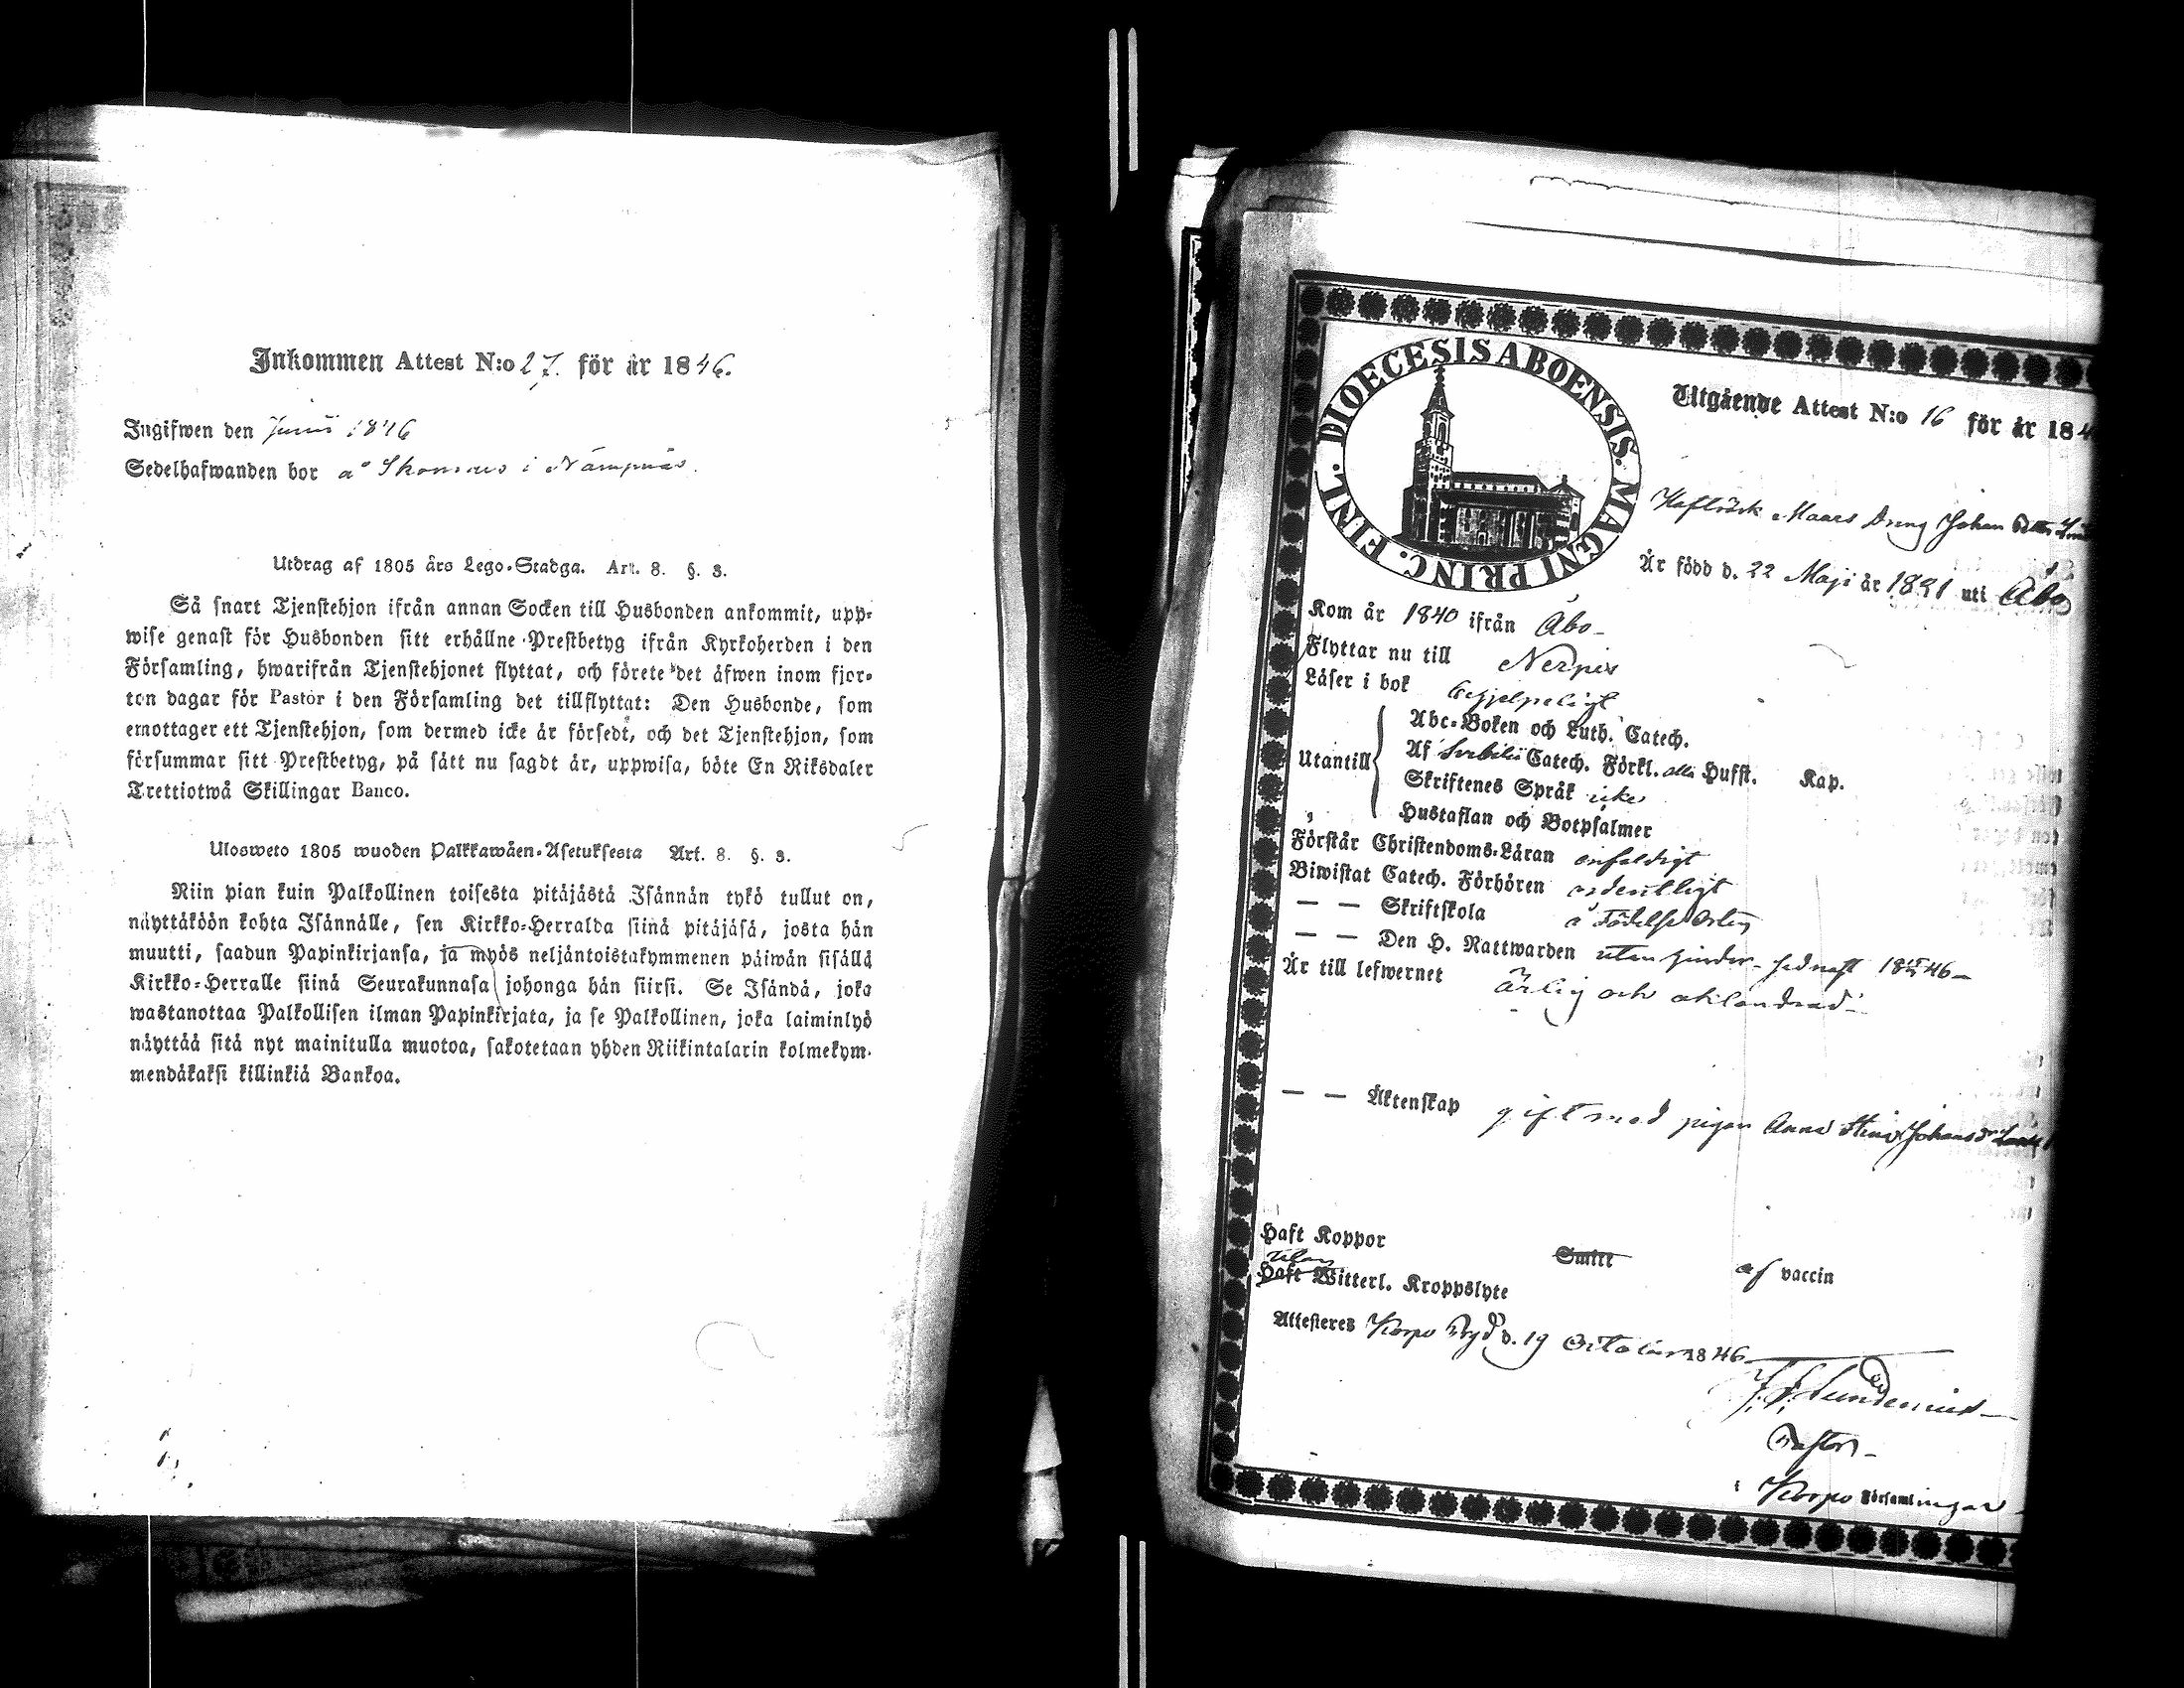 Inkommen Attest N:o 27. för år 1846.
Ingifwen den Junii 1846
Sedelhafwanden bor å Skomars i Nämpnäs.
Utdrag af 1805 års Lego-Stadga. Art. 8. §. 3.
Så snart Tjenstehjon ifrån annan Socken till Husbonden ankommit, upp-
wise genast för Husbonden sitt erhållne Prestbetyg ifrån Kyrkoherden i den
Församling, hwarifrån Tjenstehjonet flyttat, och förete det äfwen inom fjor-
ton dagar för Pastor i den Församling det tillflyttat: Den Husbonde, som
emottager ett Tjenstehjon, som dermed icke är försedt, och det Tjenstehjon, som
försummar sitt Prestbetyg, på sätt nu sagdt är, uppwisa, böte En Riksdaler
Trettiotwå Skillingar Banco.
Ulosweto 1805 wuoden Palkkawäen-Asetuksesta Art. 8. §. 3.
Niin pian kuin Palkollinen toisesta pitäjästä Isännän tykö tullut on,
näyttäköön kohta Isännälle, sen Kirkko-Herralda siinä pitäjäsä, josta hän
muutti, saadun Papinkirjansa, ja myös neljäntoistakymmenen päiwän sisällä
Kirkko-Herralle siinä Seurakunnasa johonga hän siirsi. Se Isändä, joka
wastanottaa Palkollisen ilman Papinkirjata, ja se Palkollinen, joka laiminlyö
näyttää sitä nyt mainitulla muotoa, sakotetaan yhden Riikintalarin kolmekym-
mendäkaksi killinkiä Bankoa.
DIOECESIS ABOENSIS. MAGNI PRINC. FINL.
Utgående Attest N:o 16 för år 184
Maars Dreng Johan
Är född d. 22 Maji år 1821 uti Åbo
Kom år 1840 ifrån Åbo
Flyttar nu till Nerpis
Läser i bok
Utantill
Abc-Boken och Luth. Catech.
Af Svebilii Catech. Förkl. alla Hufst. Kap.
Skriftenes Språk icke
Hustaflan och Botpsalmer
Förstår Christendoms-Läran enfaldigt
Biwistat Catech. Förhören ordentligt
— — Skriftskola å Födelse Orten
— — Den H. Nattwarden utan hinder sednast 1846
Är till lefwernet ärlig och oklandrad
— — Äktenskap gift med pigan Anna Stina Johansdr
Haft Koppor Smitt af vaccin
utan
Haft Witterl. Kroppslyte
Attesteras Korpo Prgd d. 19 October 1846
Pastor
Korpo Församlingar